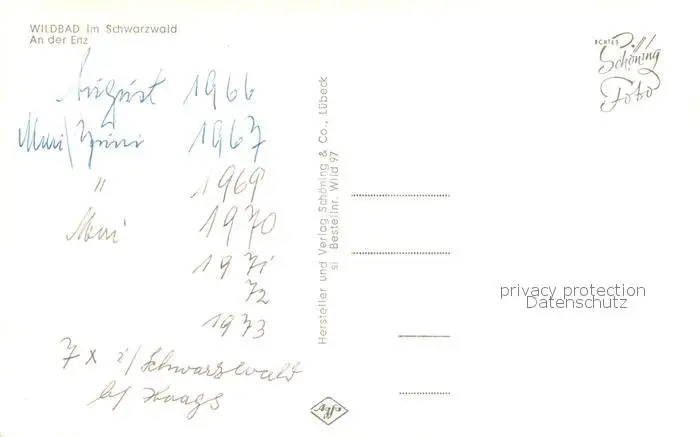 WILDBAD im Schwarzwald
An der Enz
August 1966
Mai/Juni 1967
" 1969
Mai 1970
1971
72
1973
7 x i/Schwarzwald
b/ Haags
Hersteller und Verlag Schöning & Co., Lübeck
si Bestellnr. Wild 97
ECHTES
Schöning
Foto
privacy protection
Datenschutz
Agfa